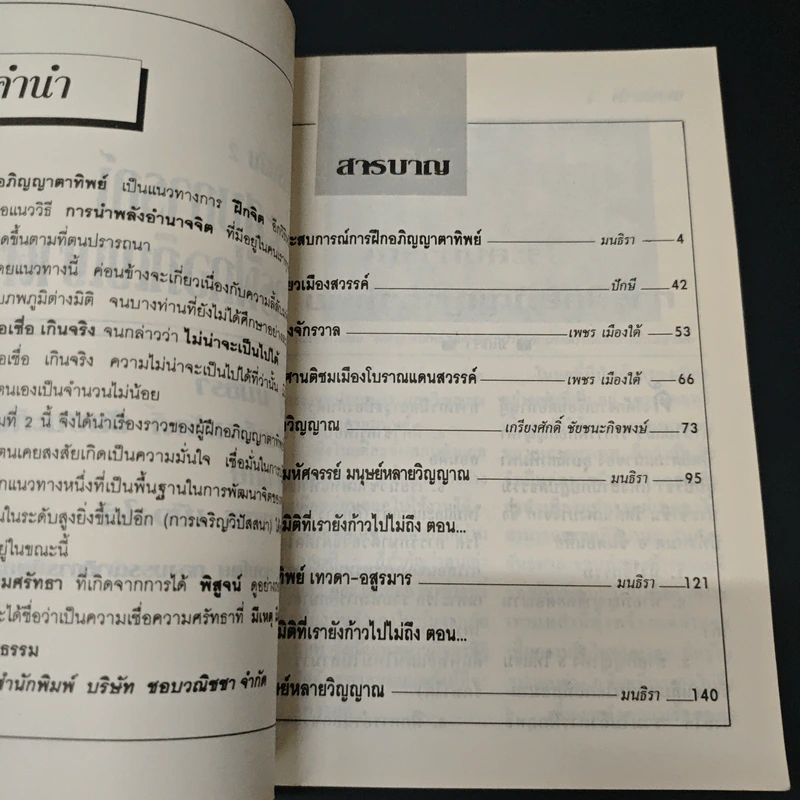 คำนำ
อภิญญาตาทิพย์ เป็นแนวทางการ ฝึกจิต
อแนววิธี การนำพลังอำนาจจิต ที่มีอยู่ในคนเรา
ดขึ้นตามที่ตนปรารถนา
ดยแนวทางนี้ ค่อนข้างจะเกี่ยวเนื่องกับความลี้ลับ
บภพภูมิต่างมิติ จนบางท่านที่ยังไม่ได้ศึกษาอย่าง
อเชื่อ เกินจริง จนกล่าวว่า ไม่น่าจะเป็นไปได้
อเชื่อ เกินจริง ความไม่น่าจะเป็นไปได้ที่ว่านั้น
ตนเองเป็นจำนวนไม่น้อย
มที่ 2 นี้ จึงได้นำเรื่องราวของผู้ฝึกอภิญญาตาทิพ
ตนเคยสงสัยเกิดเป็นความมั่นใจ เชื่อมั่นในการ
กแนวทางหนึ่งที่เป็นพื้นฐานในการพัฒนาจิตของ
นในระดับสูงยิ่งขึ้นไปอีก (การเจริญวิปัสสนา)
ยู่ในขณะนี้
มศรัทธา ที่เกิดจากการได้ พิสูจน์ ดูอย่าง
ะได้ชื่อว่าเป็นความเชื่อความศรัทธาที่ มีเหตุ
ธรรม
สำนักพิมพ์ บริษัท ชอบวณิชชา จำกัด
สารบาญ
ะสบการณ์การฝึกอภิญญาตาทิพย์ มนธิรา 4
ยวเมืองสวรรค์ ปักษี 42
งจักรวาล เพชร เมืองใต้ 53
ศานติชมเมืองโบราณแดนสวรรค์ เพชร เมืองใต้ 66
วิญญาณ เกรียงศักดิ์ ชัยชนะกิจพงษ์ 73
มหัศจรรย์ มนุษย์หลายวิญญาณ มนธิรา 95
มิติที่เรายังก้าวไปไม่ถึง ตอน...
ทิพย์ เทวดา-อสูรมาร มนธิรา 121
มิติที่เรายังก้าวไปไม่ถึง ตอน...
ษย์หลายวิญญาณ มนธิรา 140